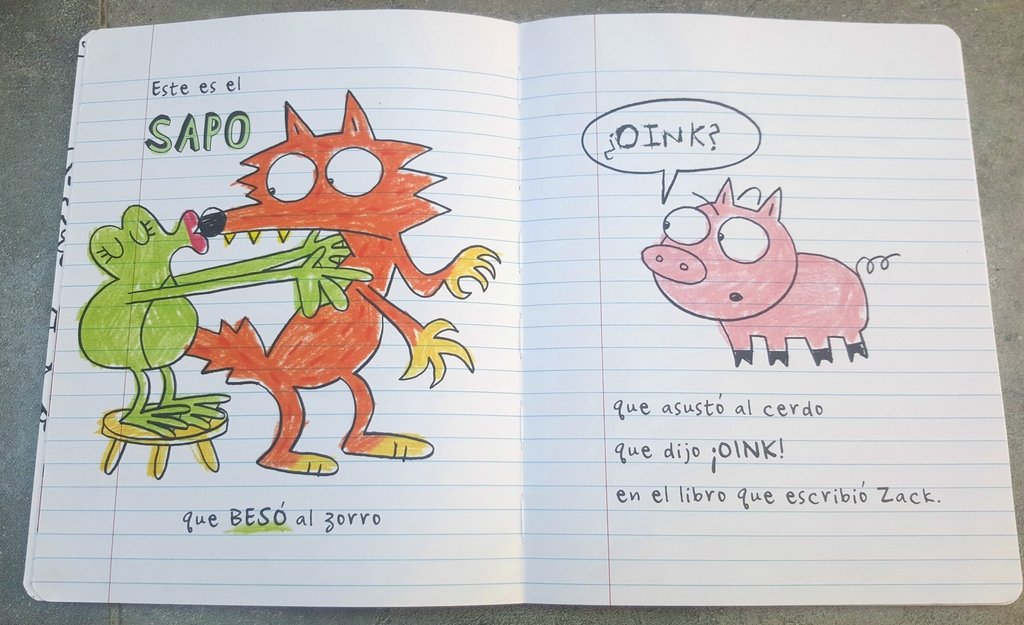 Este es el
SAPO
que BESÓ al zorro
¿OINK?
que asustó al cerdo
que dijo ¡OINK!
en el libro que escribió Zack.